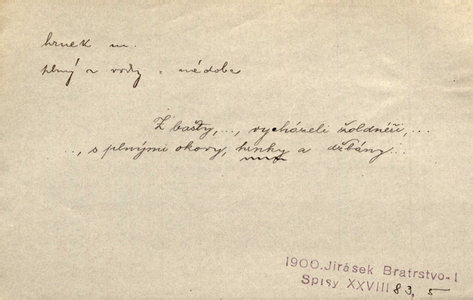 hrnek m.
plný a vody, nádoba
Z bašty, ..., vycházeli žoldnéři, ...
.., s plnými okovy, hrnky a džbány...
1900. Jirásek Bratrstvo-I
Spisy XXVIII 83, 5